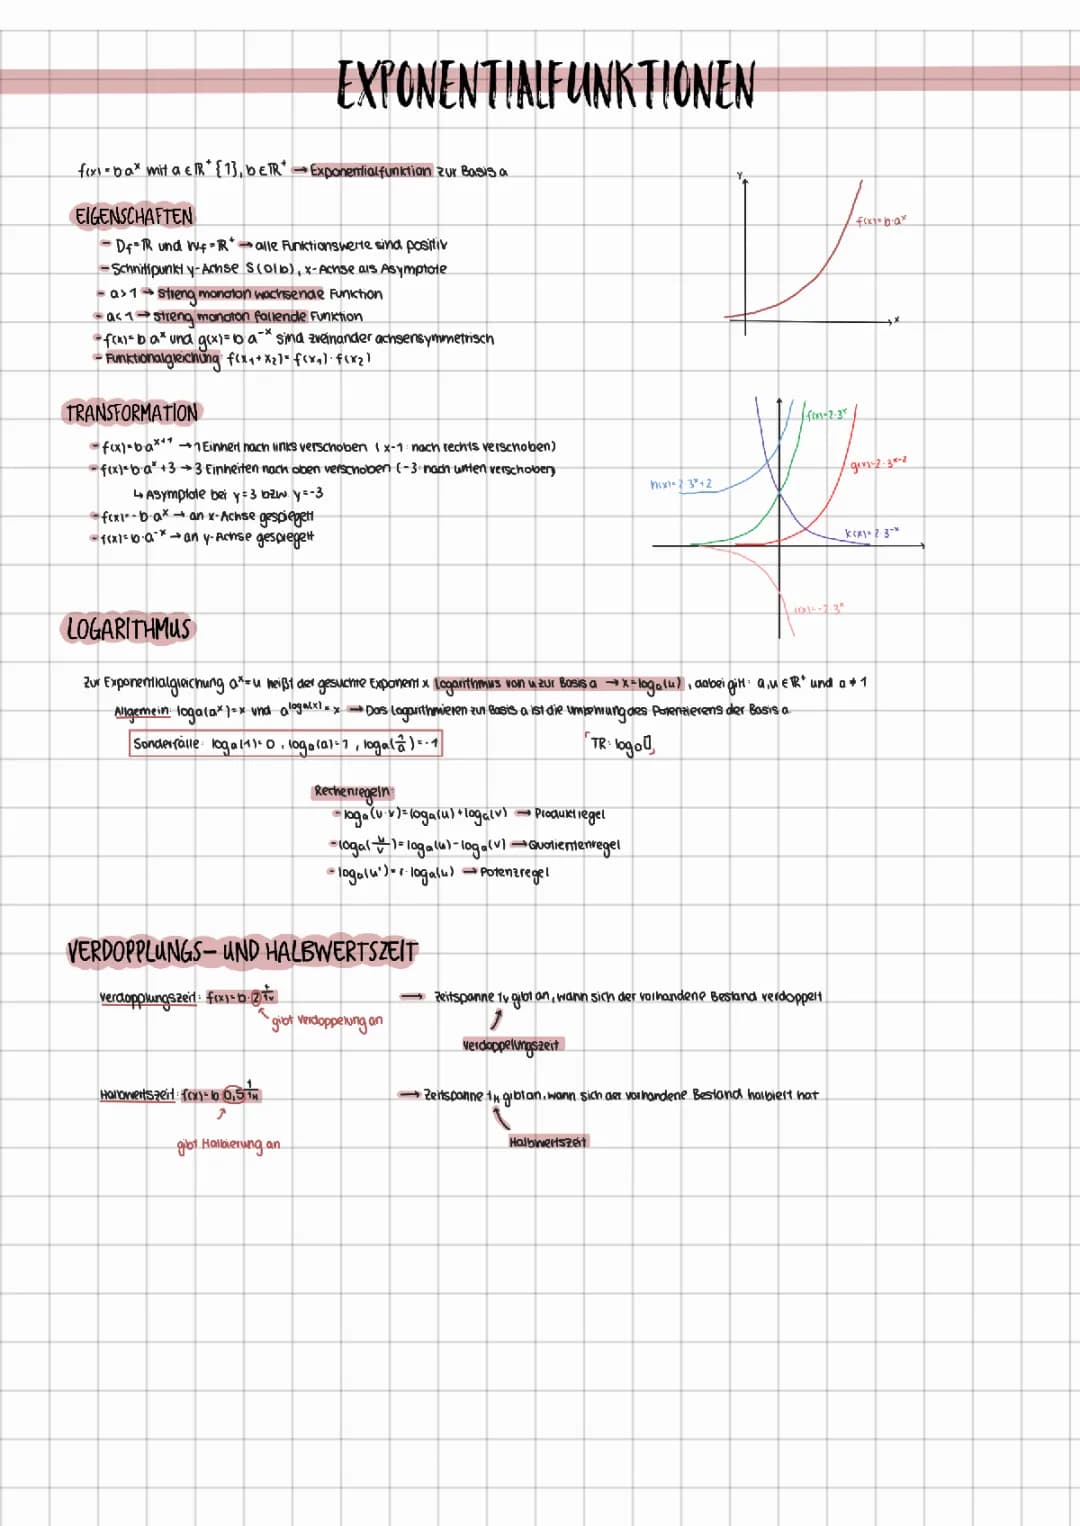 EXPONENTIALFUNKTIONEN
f(x)=b·aˣ mit a∈ℝ⁺{1}, b∈ℝ⁺ → Exponentialfunktion zur Basis a
EIGENSCHAFTEN
- Df=ℝ und Wf=ℝ⁺ → alle Funktionswerte sind positiv
- Schnittpunkt y-Achse S(0|b), x-Achse als Asymptote
- a>1 → streng monoton wachsende Funktion
- a<1 → streng monoton fallende Funktion
- f(x)=b·aˣ und g(x)=b·a⁻ˣ sind zueinander achsensymmetrisch
- Funktionalgleichung f(x₁+x₂)=f(x₁)·f(x₂)
y
f(x)=b·aˣ
x
TRANSFORMATION
- f(x)=b·aˣ⁺¹ → 1 Einheit nach links verschoben (x-1: nach rechts verschoben)
- f(x)=b·aˣ+3 → 3 Einheiten nach oben verschoben (-3: nach unten verschoben)
↳ Asymptote bei y=3 bzw. y=-3
- f(x)=-b·aˣ → an x-Achse gespiegelt
- f(x)=b·a⁻ˣ → an y-Achse gespiegelt
f(x)=2·3ˣ
g(x)=2·3ˣ⁻²
h(x)=2·3ˣ+2
k(x)=2·3⁻ˣ
i(x)=-2·3ˣ
LOGARITHMUS
Zur Exponentialgleichung aˣ=u heißt der gesuchte Exponent x Logarithmus von u zur Basis a → x=logₐ(u), dabei gilt: a,u∈ℝ⁺ und a≠1
Allgemein: logₐ(aˣ)=x und a^logₐ(x)=x → Das Logarithmieren zur Basis a ist die Umkehrung des Potenzierens der Basis a
Sonderfälle: logₐ(1)=0, logₐ(a)=1, logₐ(1/a)=-1
TR: log₀▯
Rechenregeln:
- logₐ(u·v)=logₐ(u)+logₐ(v) → Produktregel
- logₐ(u/v)=logₐ(u)-logₐ(v) → Quotientenregel
- logₐ(uʳ)=r·logₐ(u) → Potenzregel
VERDOPPLUNGS- UND HALBWERTSZEIT
Verdopplungszeit: f(x)=b·2^(t/tᵥ) → Zeitspanne tᵥ gibt an, wann sich der vorhandene Bestand verdoppelt
gibt Verdoppelung an
Verdoppelungszeit
Halbwertszeit: f(x)=b·0,5^(t/t_H) → Zeitspanne t_H gibt an, wann sich der vorhandene Bestand halbiert hat
gibt Halbierung an
Halbwertszeit